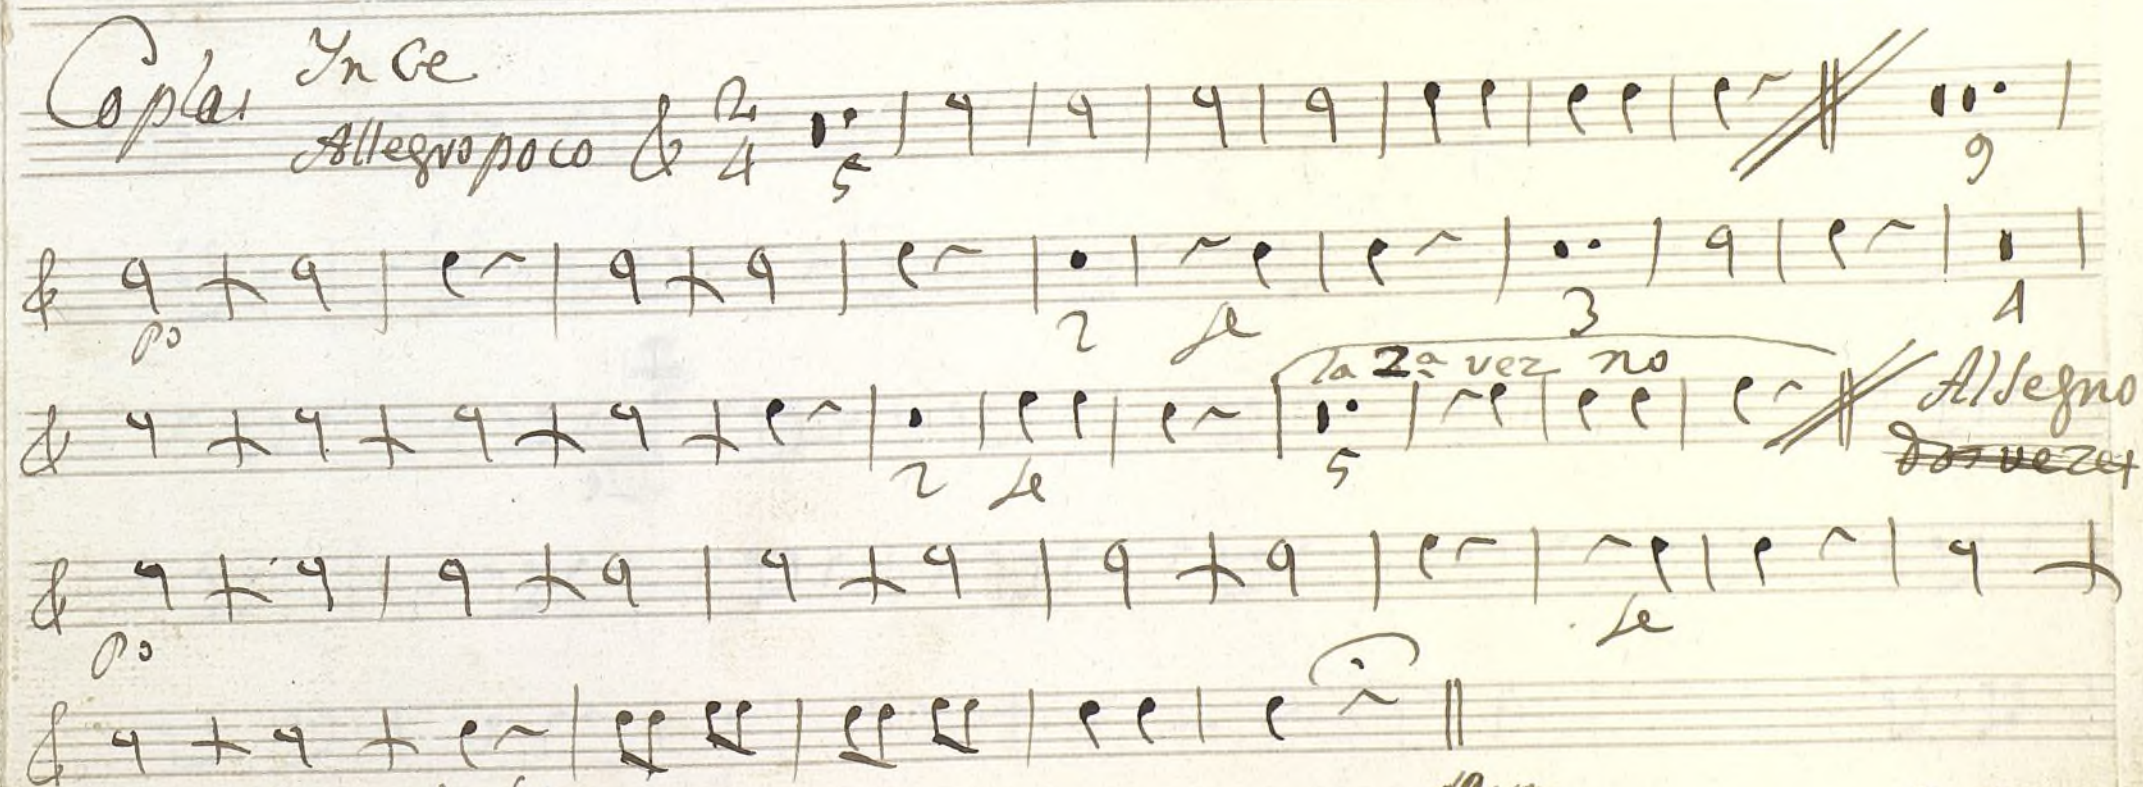 Coplas In Ce
Allegro poco 2 4 5 9
po 2 fe 3 4
la 2ª vez no
2 fe 5 Allegro
dos vezes
po fe